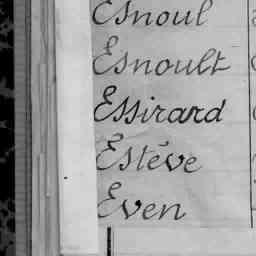 Esnoul
Esnoult
Essirard
Estève
Even